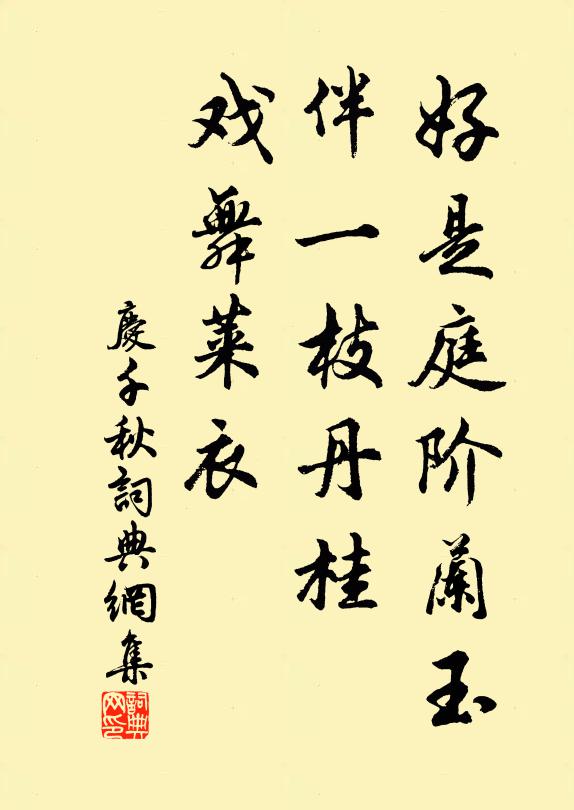 好是庭阶蘭玉
伴一枝丹桂
戏舞莱衣
慶千秋詞典網集
詞典网印